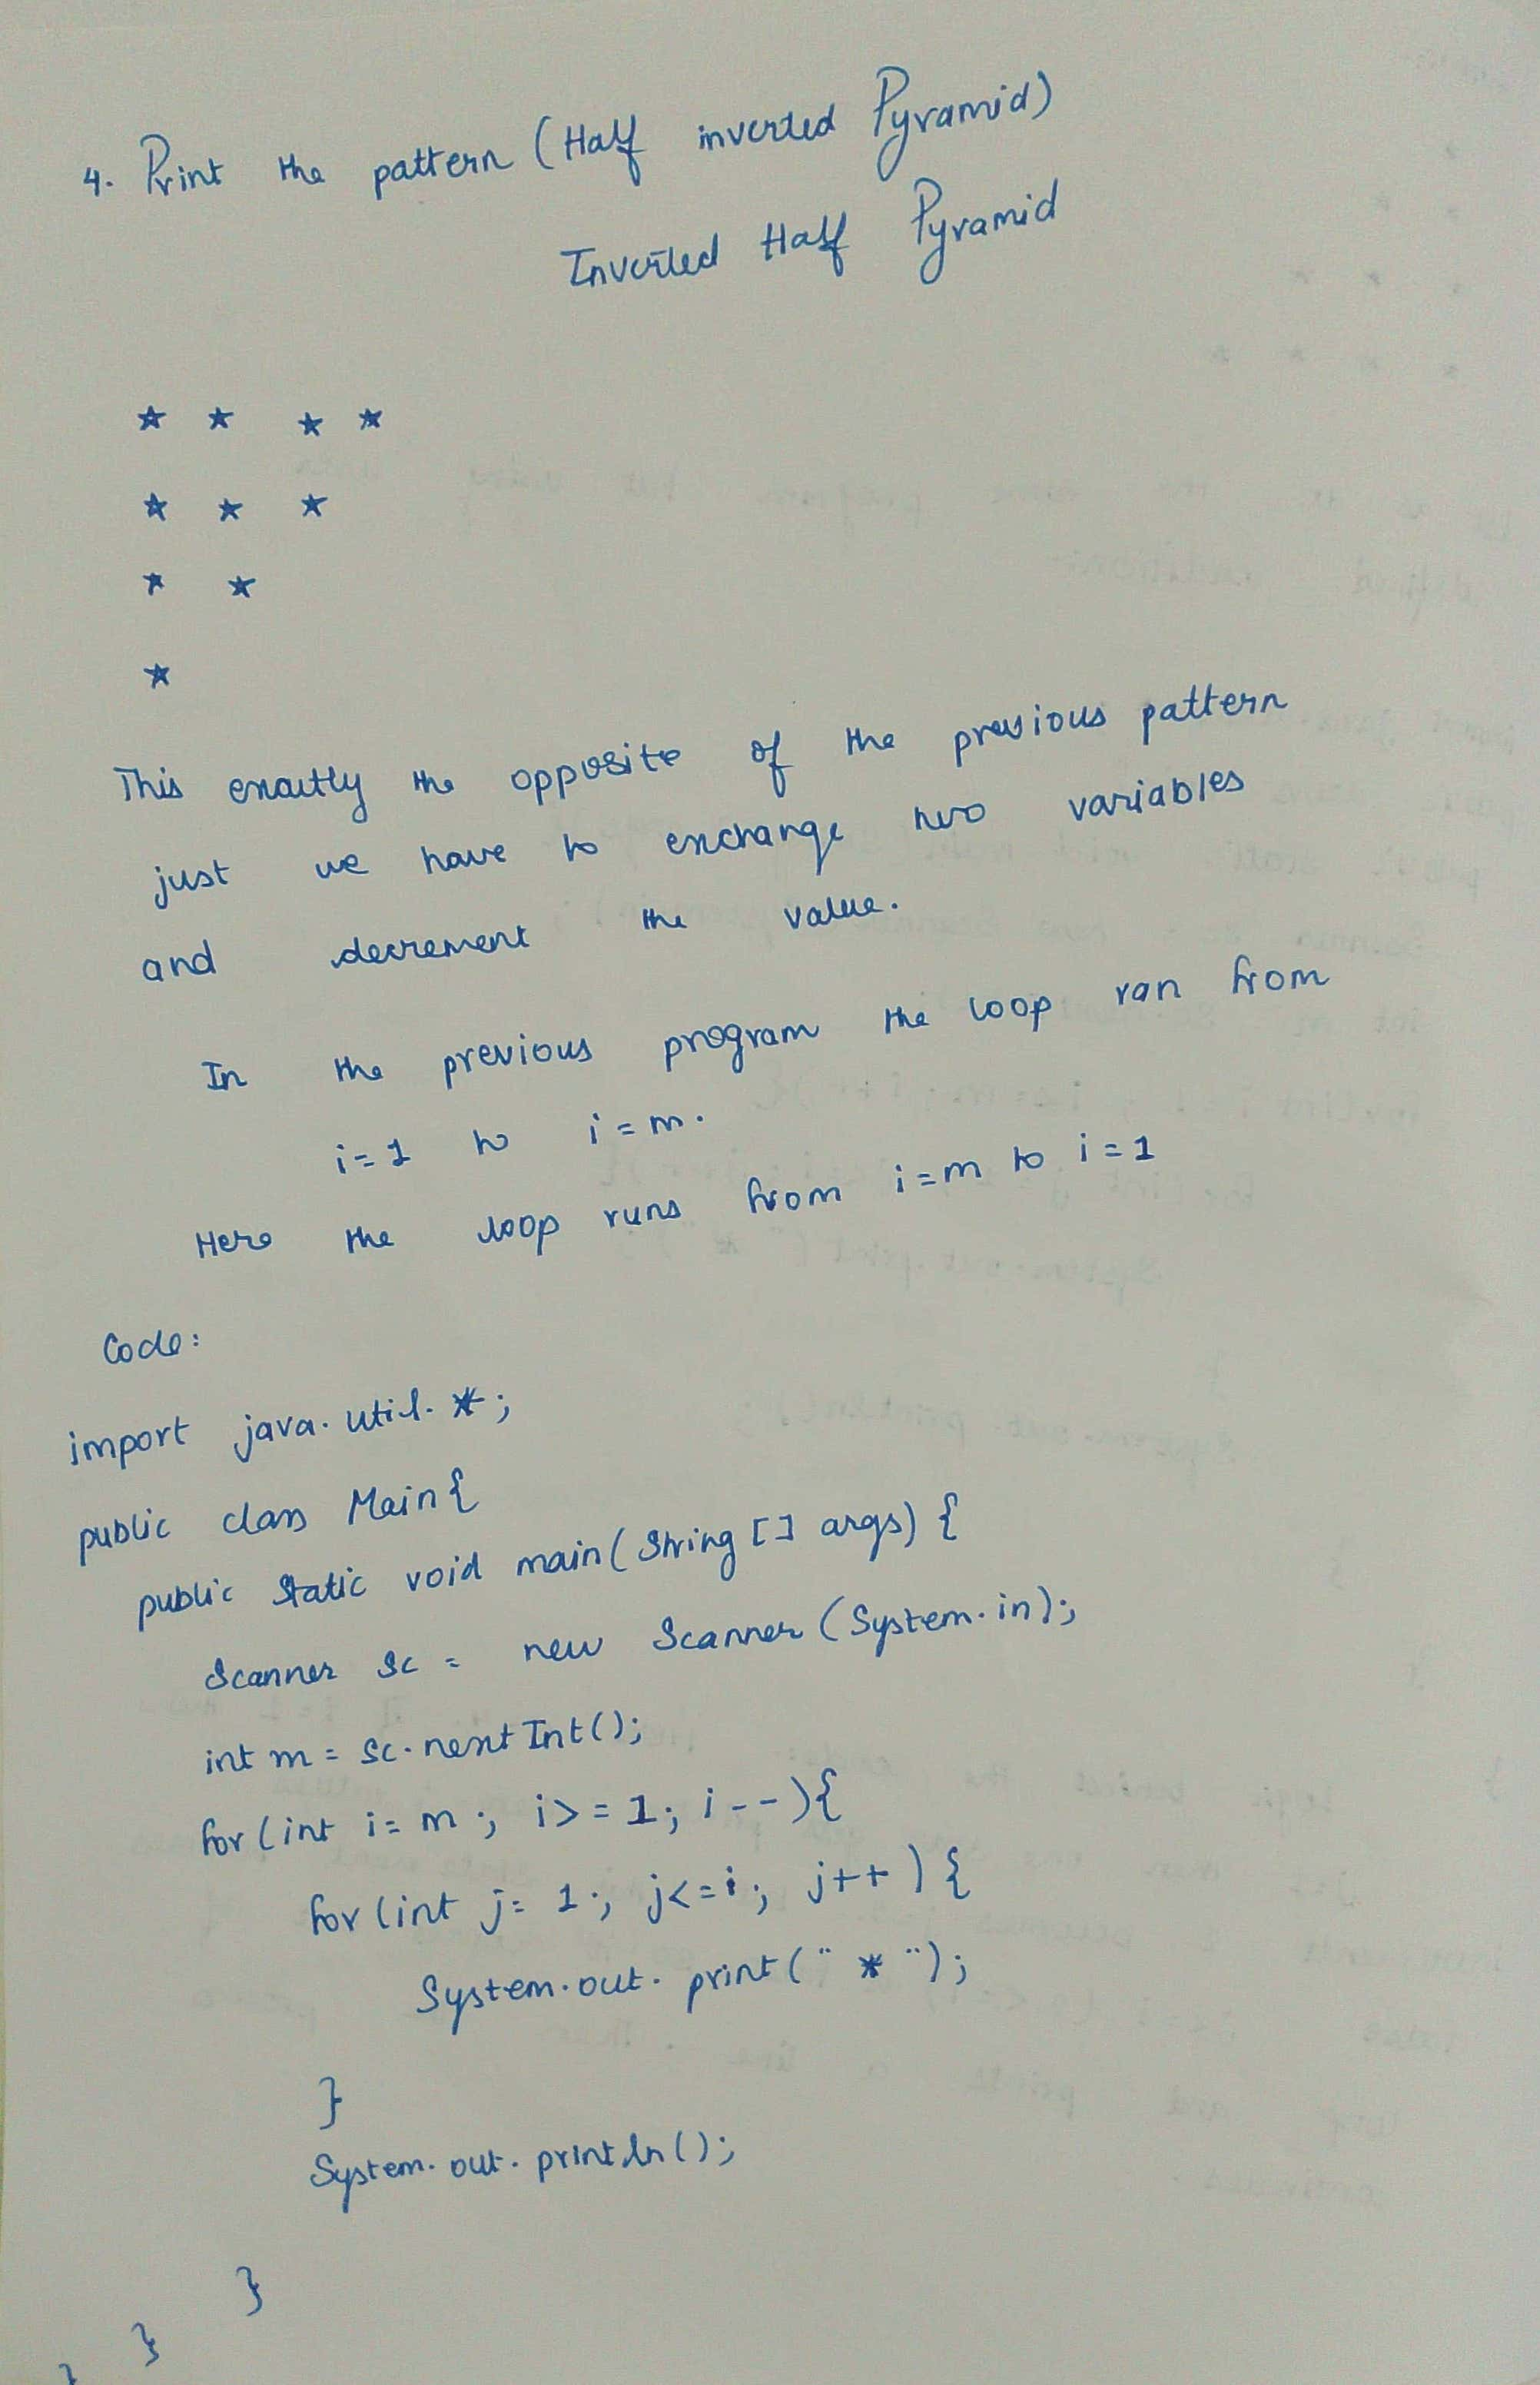 4. Print the pattern (Half inverted Pyramid)
Inverted Half Pyramid
* * * *
* * *
* *
*
This exactly the opposite of the previous pattern
just we have to exchange two variables
and decrement the value.
In the previous program the loop ran from
i=1 to i=m.
Here the loop runs from i=m to i=1
Code:
import java.util.*;
public class Main{
public static void main(String [] args) {
Scanner sc = new Scanner (System.in);
int m = sc.nextInt();
for(int i= m ; i>=1; i--){
for(int j= 1; j<=i; j++) {
System.out.print(" * ");
}
System.out.println();
}
}
}